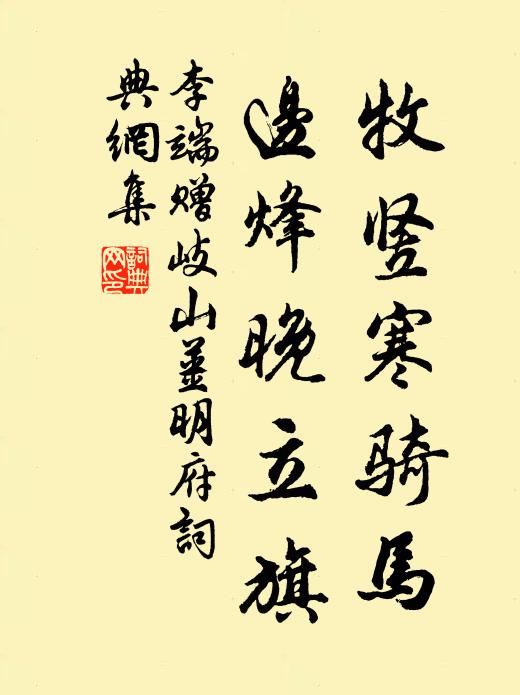 牧竖寒骑馬
邊烽晚立旗
李端赠岐山姜明府詞
典網集
詞典
网印